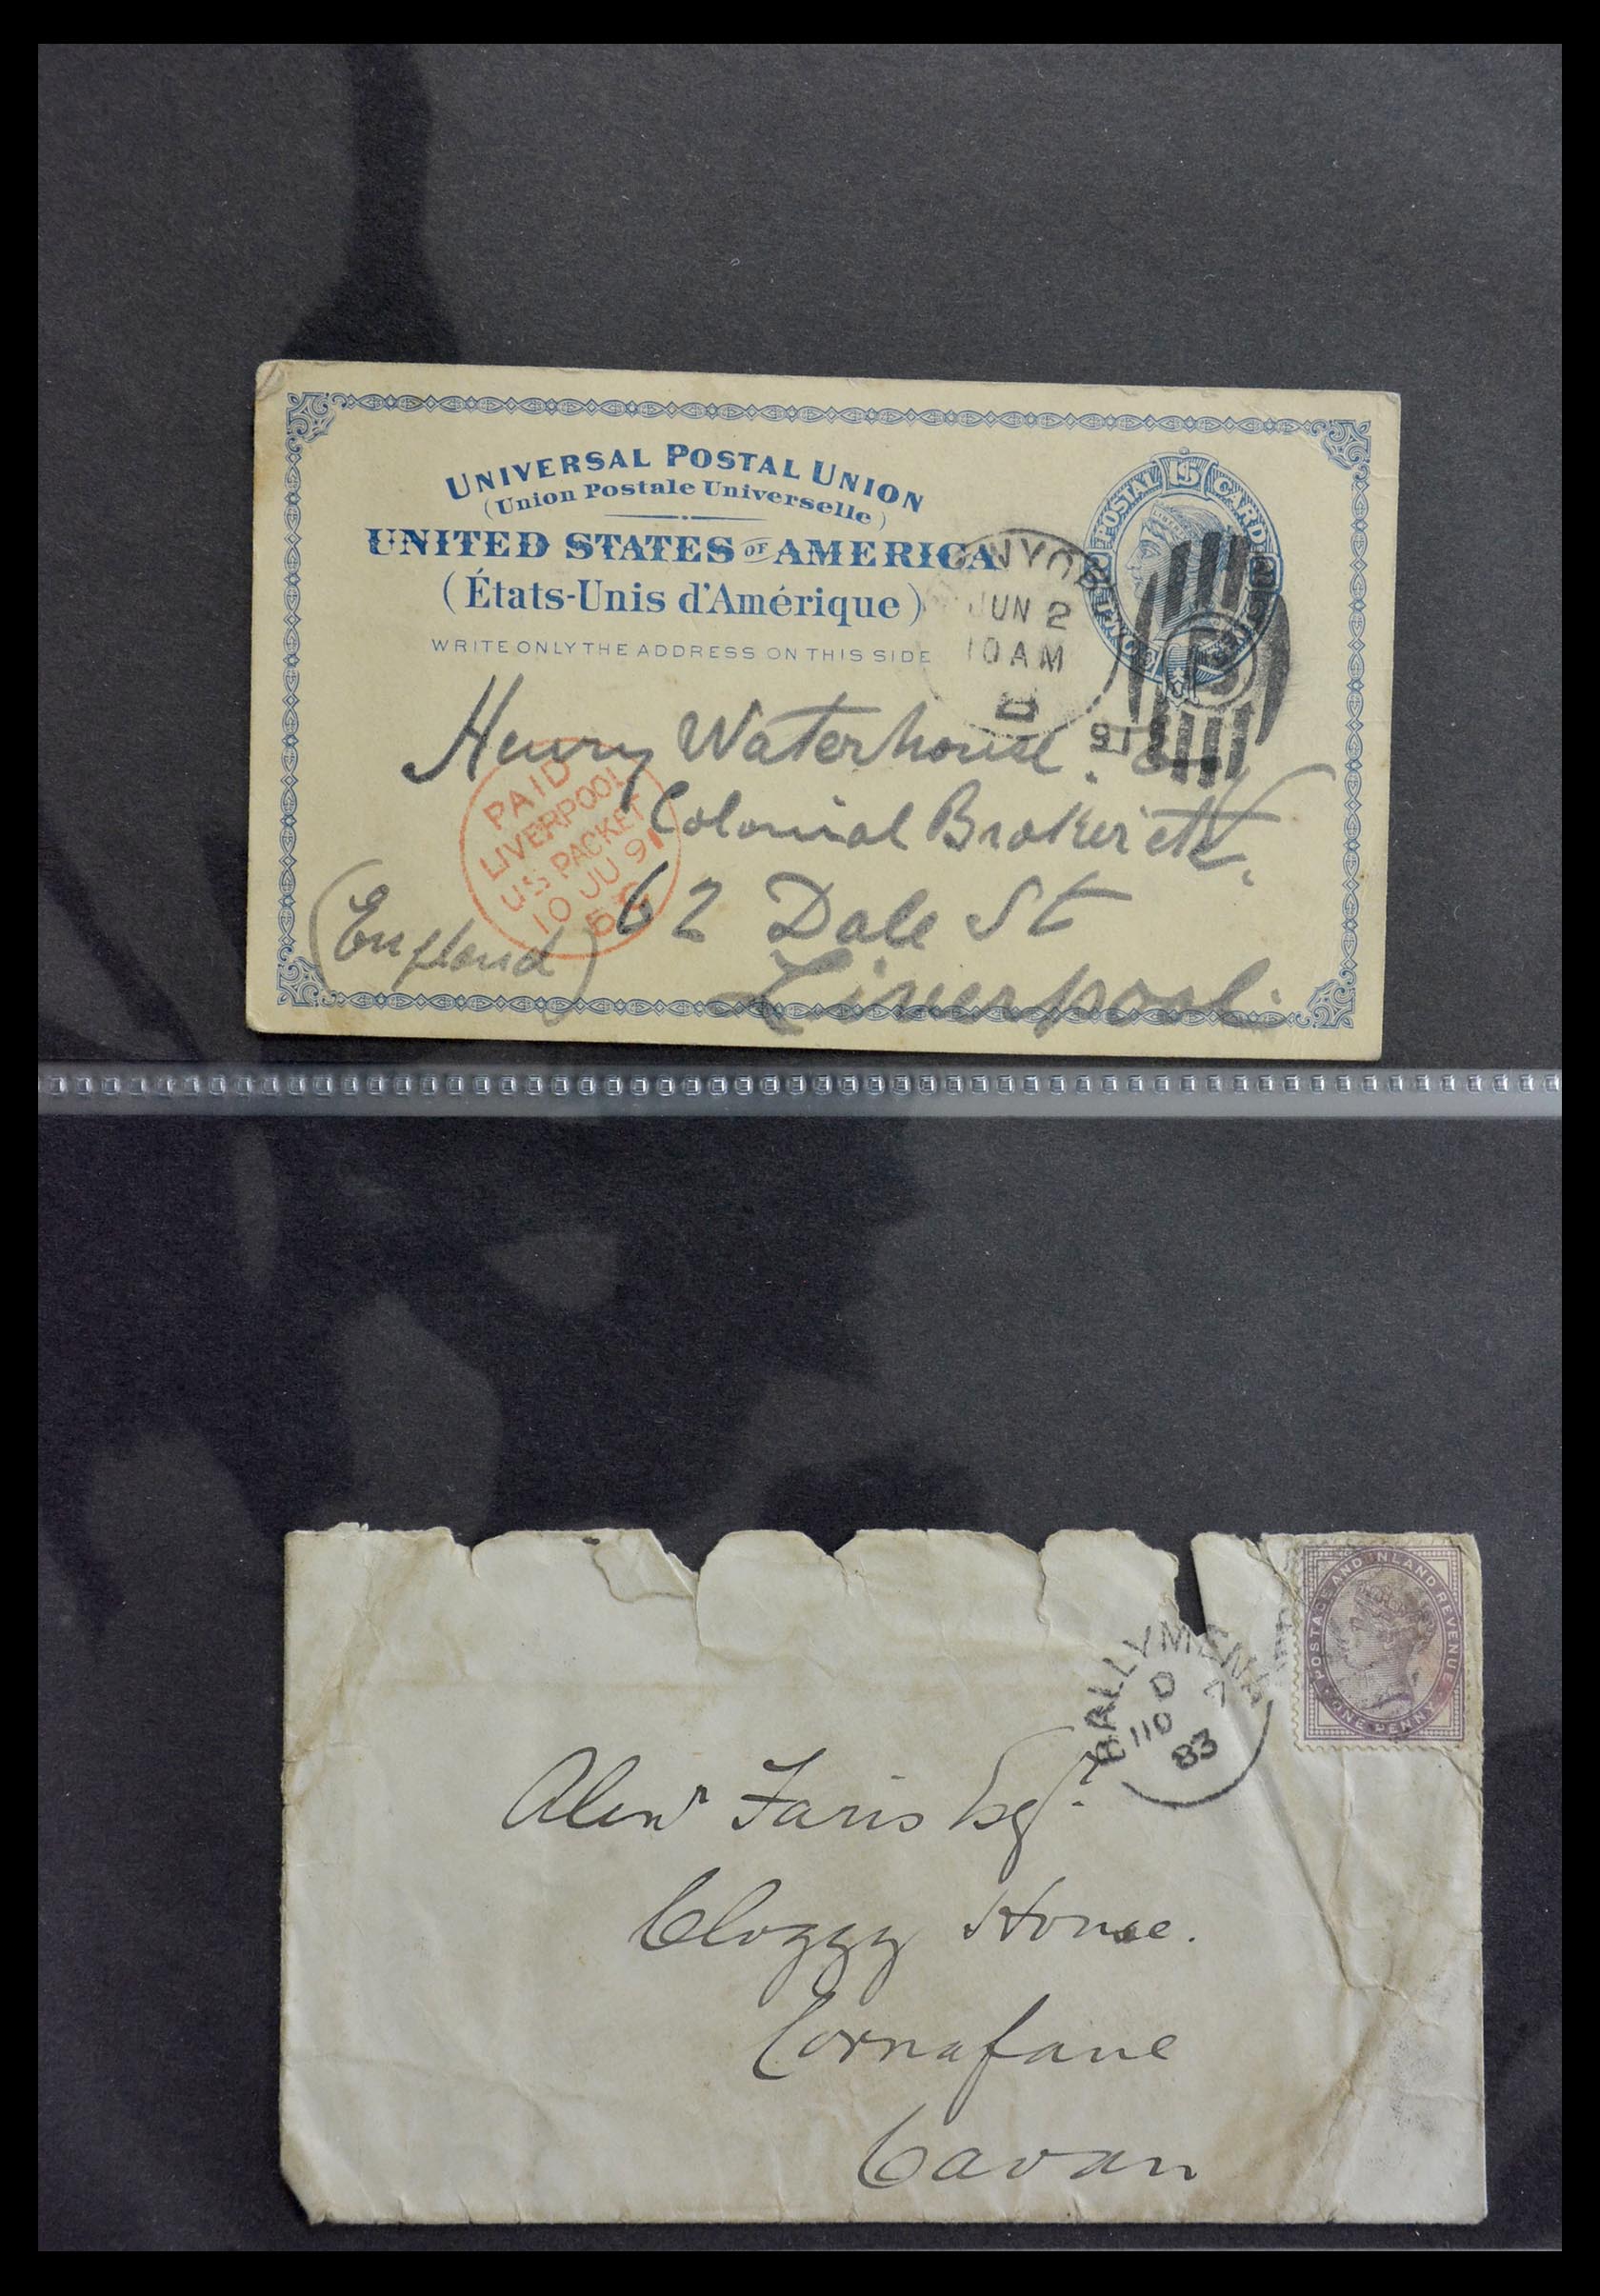 UNIVERSAL POSTAL UNION
(Union Postale Universelle)
UNITED STATES OF AMERICA
(États-Unis d'Amérique)
WRITE ONLY THE ADDRESS ON THIS SIDE
POSTAL 1S CARD
TWO CENTS
NYOR
JUN 2
10 AM
D
91
Henry Waterhouse.
Colonial Broker etc.
62 Dale St
Liverpool
(England)
PAID
LIVERPOOL
US PACKET
10 JU 91
5
POSTAGE AND INLAND REVENUE
ONE PENNY
BALLYMENA
D
7
110
83
Alexr Faris Esqr.
Cloggy House.
Cornafane
Cavan